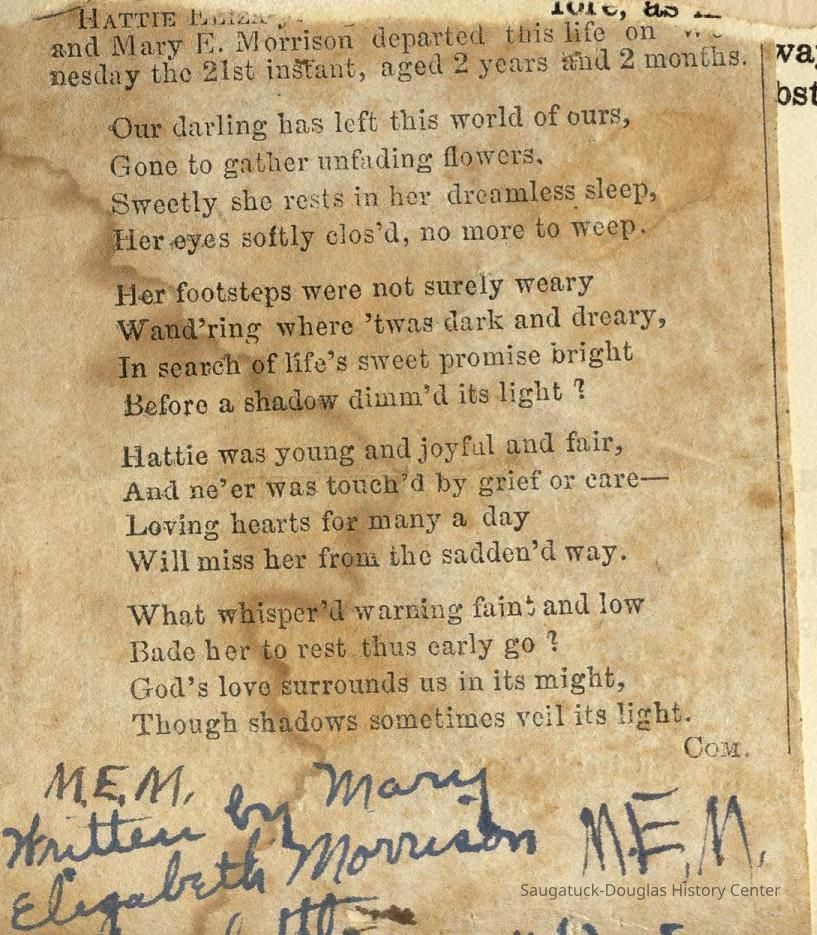 HATTIE
fore, as
and Mary E. Morrison departed this life on
nesday the 21st instant, aged 2 years and 2 months.
Our darling has left this world of ours,
Gone to gather unfading flowers.
Sweetly she rests in her dreamless sleep,
Her eyes softly clos'd, no more to weep.
Her footsteps were not surely weary
Wand'ring where 'twas dark and dreary,
In search of life's sweet promise bright
Before a shadow dimm'd its light ?
Hattie was young and joyful and fair,
And ne'er was touch'd by grief or care—
Loving hearts for many a day
Will miss her from the sadden'd way.
What whisper'd warning faint and low
Bade her to rest thus early go ?
God's love surrounds us in its might,
Though shadows sometimes veil its light.
COM.
M.E.M.
Written by Mary
Elizabeth Morrison
M.E.M.
Saugatuck-Douglas History Center